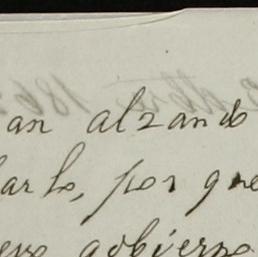 an alzando
arlo, por que
gobierno